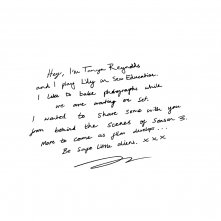 Hey, I'm Tanya Reynolds
and I play Lily in Sex Education.
I like to take photographs while
we are waiting on set.
I wanted to share some with you
from behind the scenes of season 3.
More to come as film develops...
Be safe little aliens. x x x